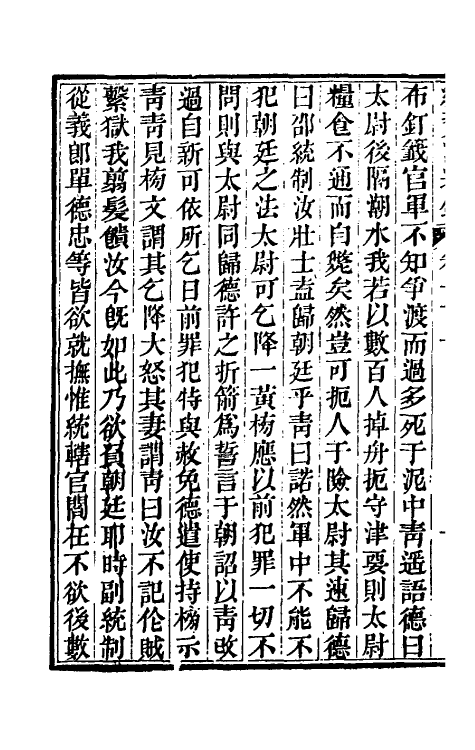 布釘籖官軍不知爭渡而過多死于泥中靑遥語德曰
太尉後隔潮水我若以數百人掉舟扼守津要則太尉
糧食不通而自斃矣然豈可扼人于險太尉其速歸德
曰邵統制汝壯士盍歸朝廷乎靑曰諾然軍中不能不
犯朝廷之法太尉可乞降一黃榜應以前犯罪一切不
問則與太尉同歸德許之折箭爲誓言于朝詔以靑攺
過自新可依所乞日前罪犯特與赦免德遣使持榜示
靑靑見榜文謂其乞降大怒其妻謂靑曰汝不記伦賊
繫獄我翦髮饋汝今旣如此乃欲負朝廷耶時副統制
從義郎單德忠等皆欲就撫惟統轄官閻在不欲後數